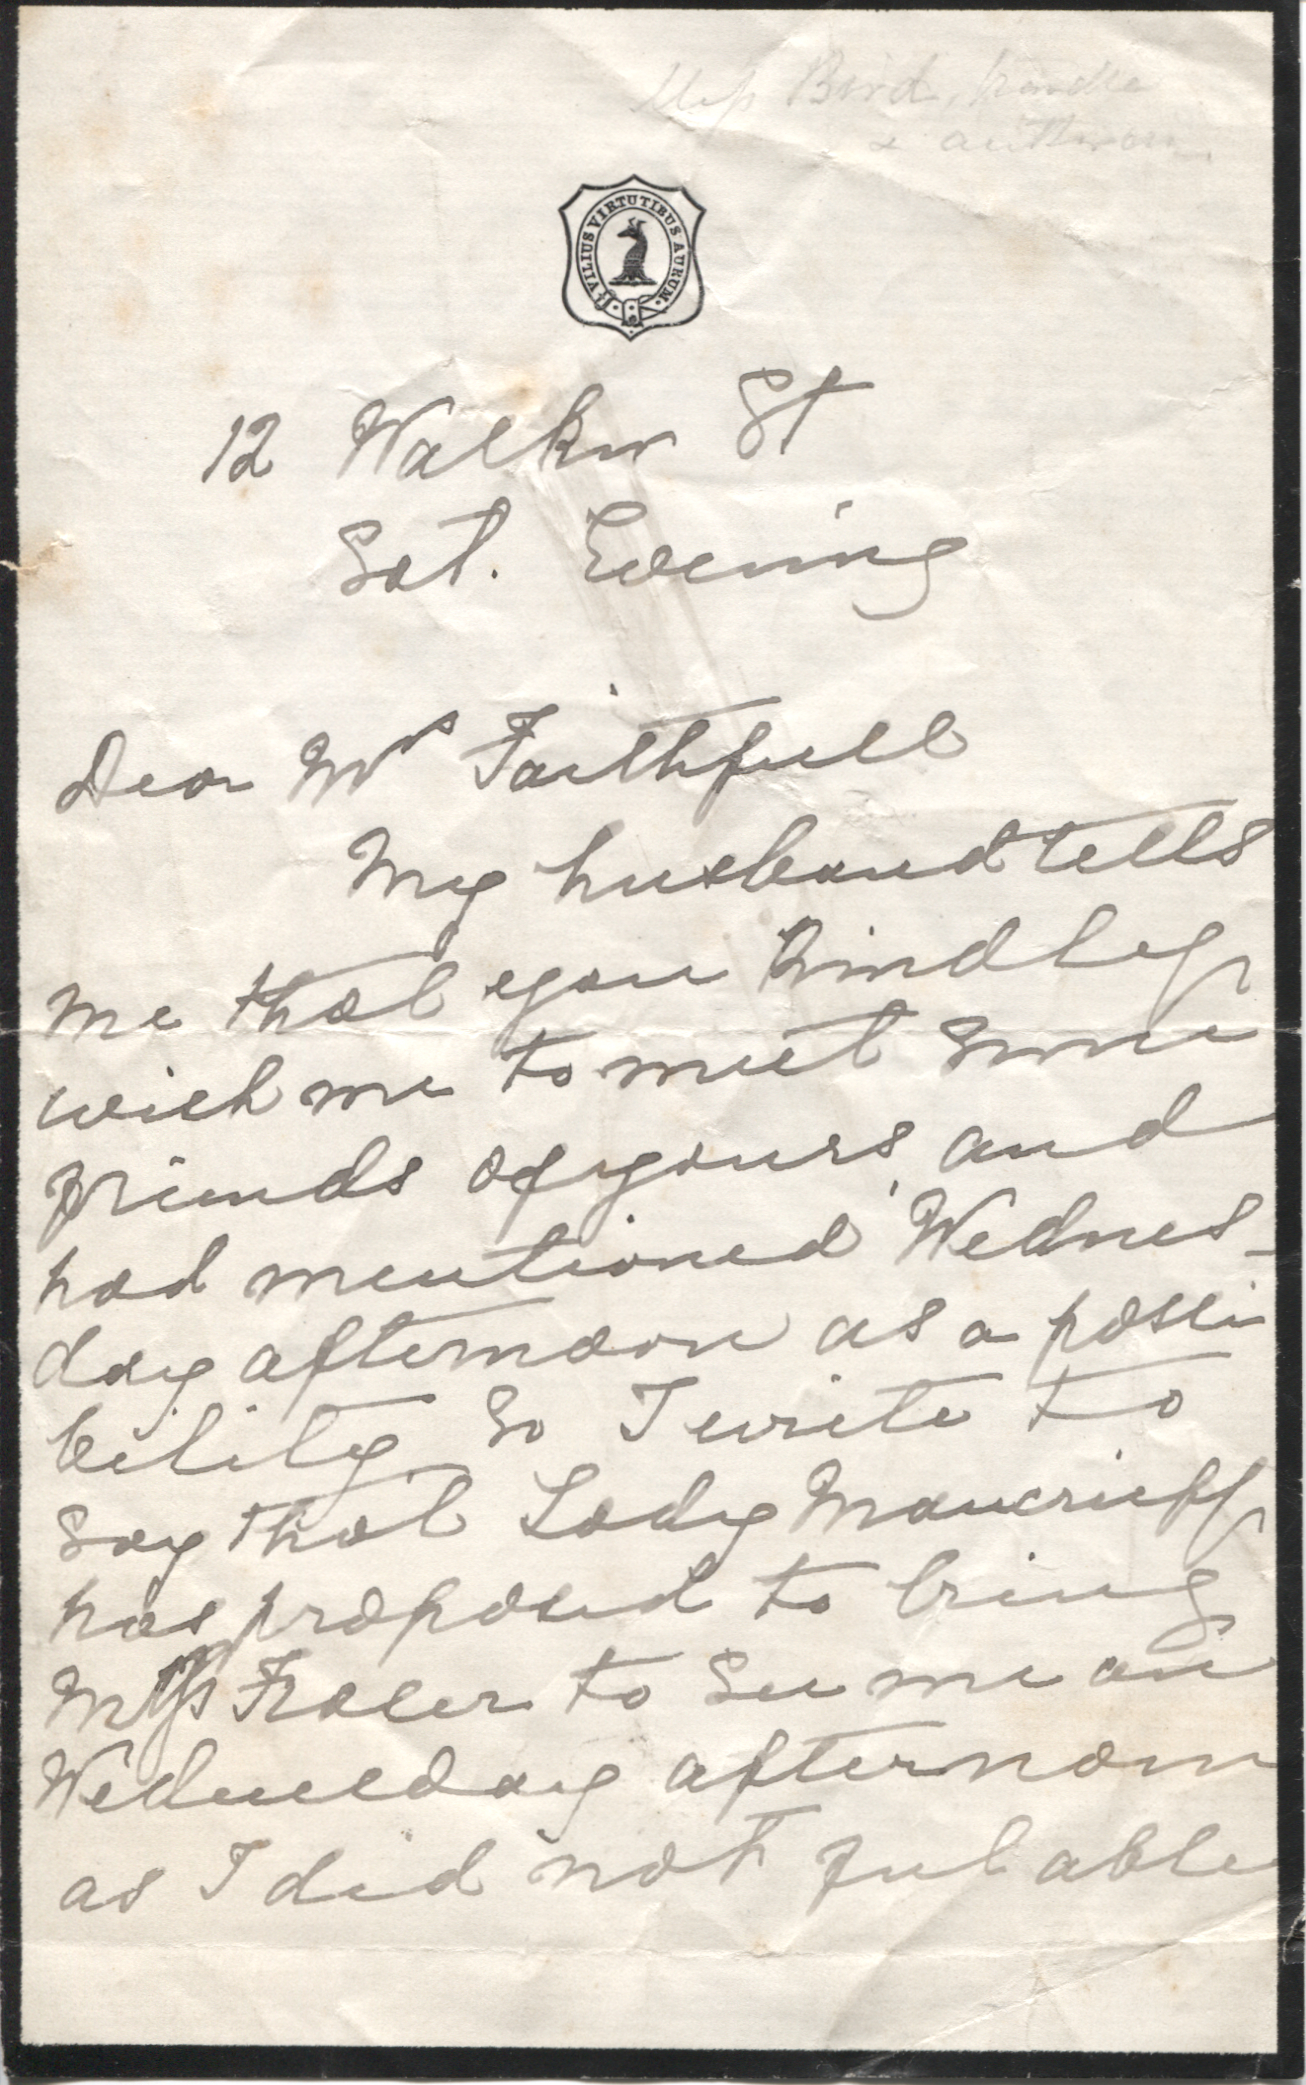 Miss Bird, traveller
& authoress
VILIUS VIRTUTIBUS AURUM
12 Walker St
Sat. Evening
Dear Mrs Faithfull
My husband tells
me that you kindly
wish me to meet some
friends of yours, and
had mentioned Wednes-
day afternoon as a possi
bility so I write to
say that Lady Moncrieff
has proposed to bring
Fraser to see me on
Wednesday afternoon
as I did not feel able